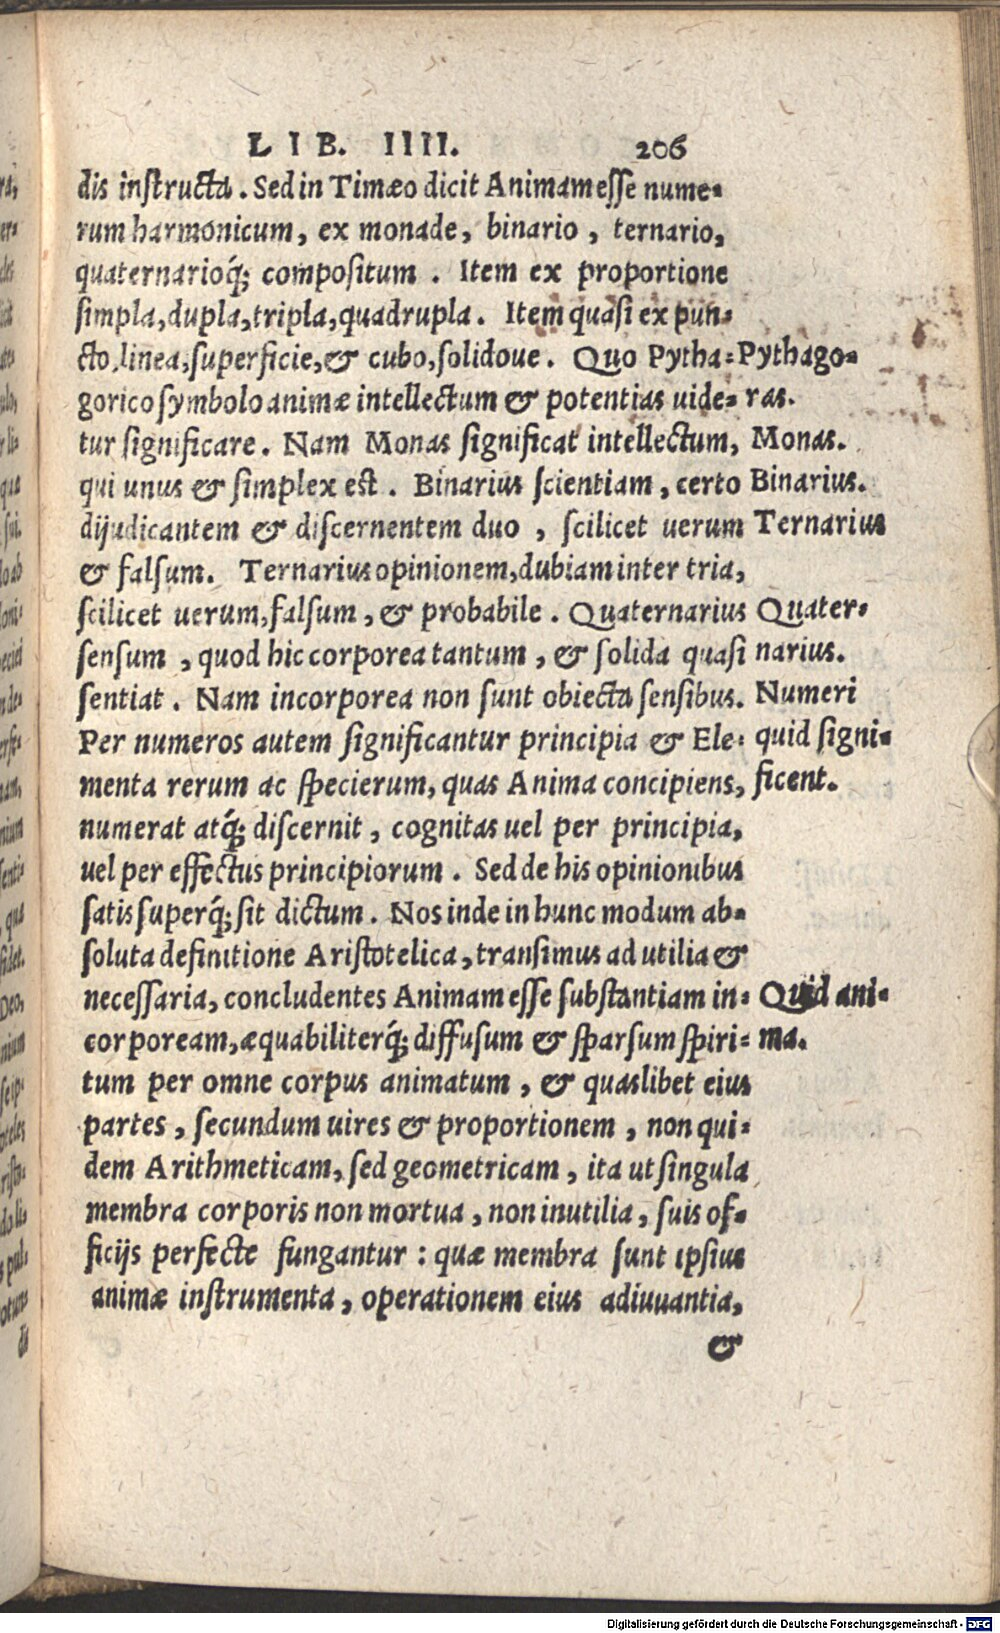 LIB. IIII. 206
dis instructa. Sed in Timæo dicit Animam esse nume-
rum harmonicum, ex monade, binario, ternario,
quaternarioq́; compositum. Item ex proportione
simpla, dupla, tripla, quadrupla. Item quasi ex pun-
cto, linea, superficie, & cubo, solidoue. Quo Pytha-
gorico symbolo animæ intellectum & potentias uide-
tur significare. Nam Monas significat intellectum,
qui unus & simplex est. Binarius scientiam, certo
dijudicantem & discernentem duo, scilicet uerum
& falsum. Ternarius opinionem, dubiam inter tria,
scilicet uerum, falsum, & probabile. Quaternarius
sensum, quod hic corporea tantum, & solida quasi
sentiat. Nam incorporea non sunt obiecta sensibus.
Per numeros autem significantur principia & Ele-
menta rerum ac specierum, quas Anima concipiens,
numerat atq́; discernit, cognitas uel per principia,
uel per effectus principiorum. Sed de his opinionibus
satis superq́; sit dictum. Nos inde in hunc modum ab-
soluta definitione Aristotelica, transimus ad utilia &
necessaria, concludentes Animam esse substantiam in-
corpoream, æquabiliterq́; diffusum & sparsum spiri-
tum per omne corpus animatum, & quaslibet eius
partes, secundum uires & proportionem, non qui-
dem Arithmeticam, sed geometricam, ita ut singula
membra corporis non mortua, non inutilia, suis of-
ficijs perfecte fungantur: quæ membra sunt ipsius
animæ instrumenta, operationem eius adiuuantia,
&
Pythago-
ras.
Monas.
Binarius.
Ternarius
Quater-
narius.
Numeri
quid signi-
ficent.
Quid ani-
ma.
Digitalisierung gefördert durch die Deutsche Forschungsgemeinschaft - DFG